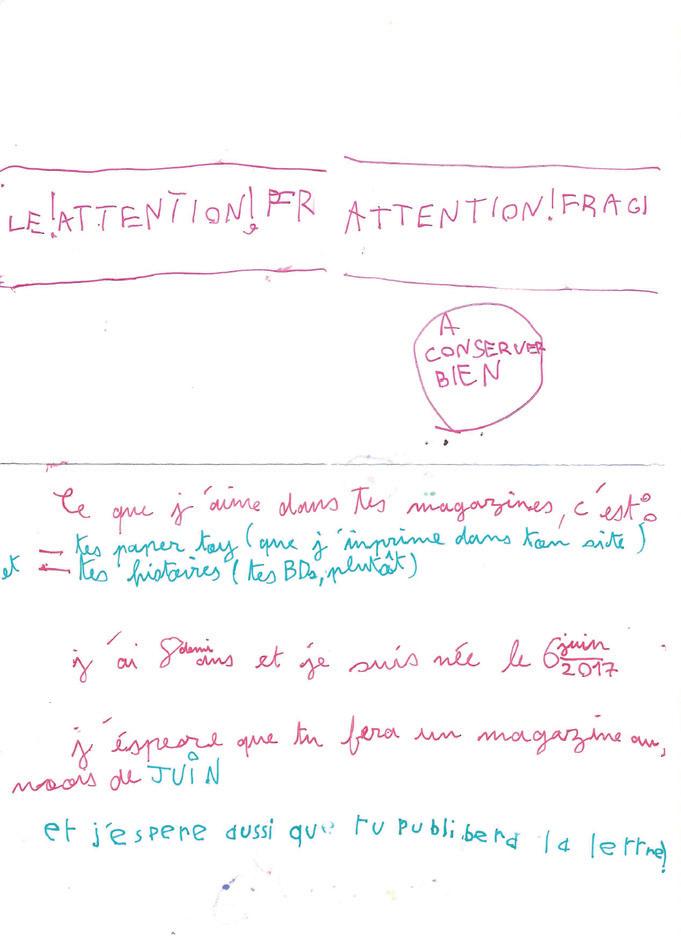 LE!ATTENTION! FR
ATTENTION!FRAGI
A
CONSERVER
BIEN
Ce que j'aime dans tes magazines, c'est:
– tes paper toy (que j'inprime dans ton site)
et – tes histoires (tes BDs, plutôt)
j'ai 8 demi ans et je suis née le 6 juin 2017
j'éspeore que tu fera un magazine au,
moois de JUIN
et j'espere aussi que tu publibera la lettre!